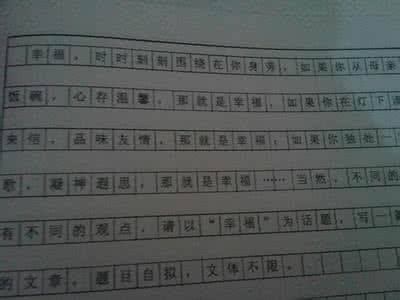 幸福，时时刻刻围绕在你身旁，如果你从母亲
饭碗，心存温馨，那就是幸福，如果你在灯下
来信，品味友情，那就是幸福；如果你独抱一
歌，凝神遐思，那就是幸福……当然，不同的
有不同的观点，请以“幸福”为话题，写一篇
的文章。题目自拟，文体不限。